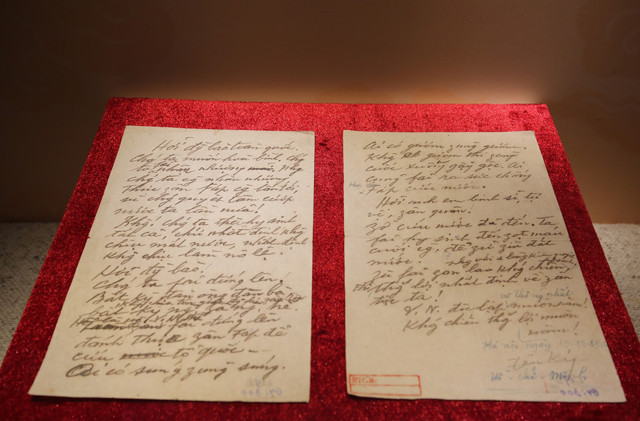 Hỡi đồng bào toàn quốc,
Chúng ta muốn hoà bình, chúng
ta phải nhân nhượng. Nhưng
chúng ta càng nhân nhượng,
thực zân Pháp càng lấn tới,
vì chúng quyết tâm cướp
nước ta lần nữa.
Không! Chúng ta thà hy sinh
tất cả, chứ nhất định không
chịu mất nước, nhất định không
chịu làm nô lệ.
Hỡi đồng bào!
Chúng ta phải đứng lên!
Bất kỳ đàn ông đàn bà
bất kỳ người già, người trẻ
phải đứng lên
đánh thực zân Pháp để
cứu tổ quốc.
Ai có súng zùng súng.
Ai có gươm zùng gươm.
Không có gươm thì zùng
cuốc xuổng gậy gộc. Ai
cũng phải ra sức chống
Pháp cứu nước.
Hỡi anh em binh sĩ, tự
vệ, zân quân.
Giờ cứu nước đã đến. Ta
phải hy sinh đến giọt máu
cuối cùng, để giữ gìn đất
nước.
Dù phải gian lao kháng chiến,
thắng lợi nhất định về zân
tộc ta!
V.N. độc lập muôn năm!
Kháng chiến thắng lợi muôn
năm!
Hà nội ngày
Hồ - Chí - Minh